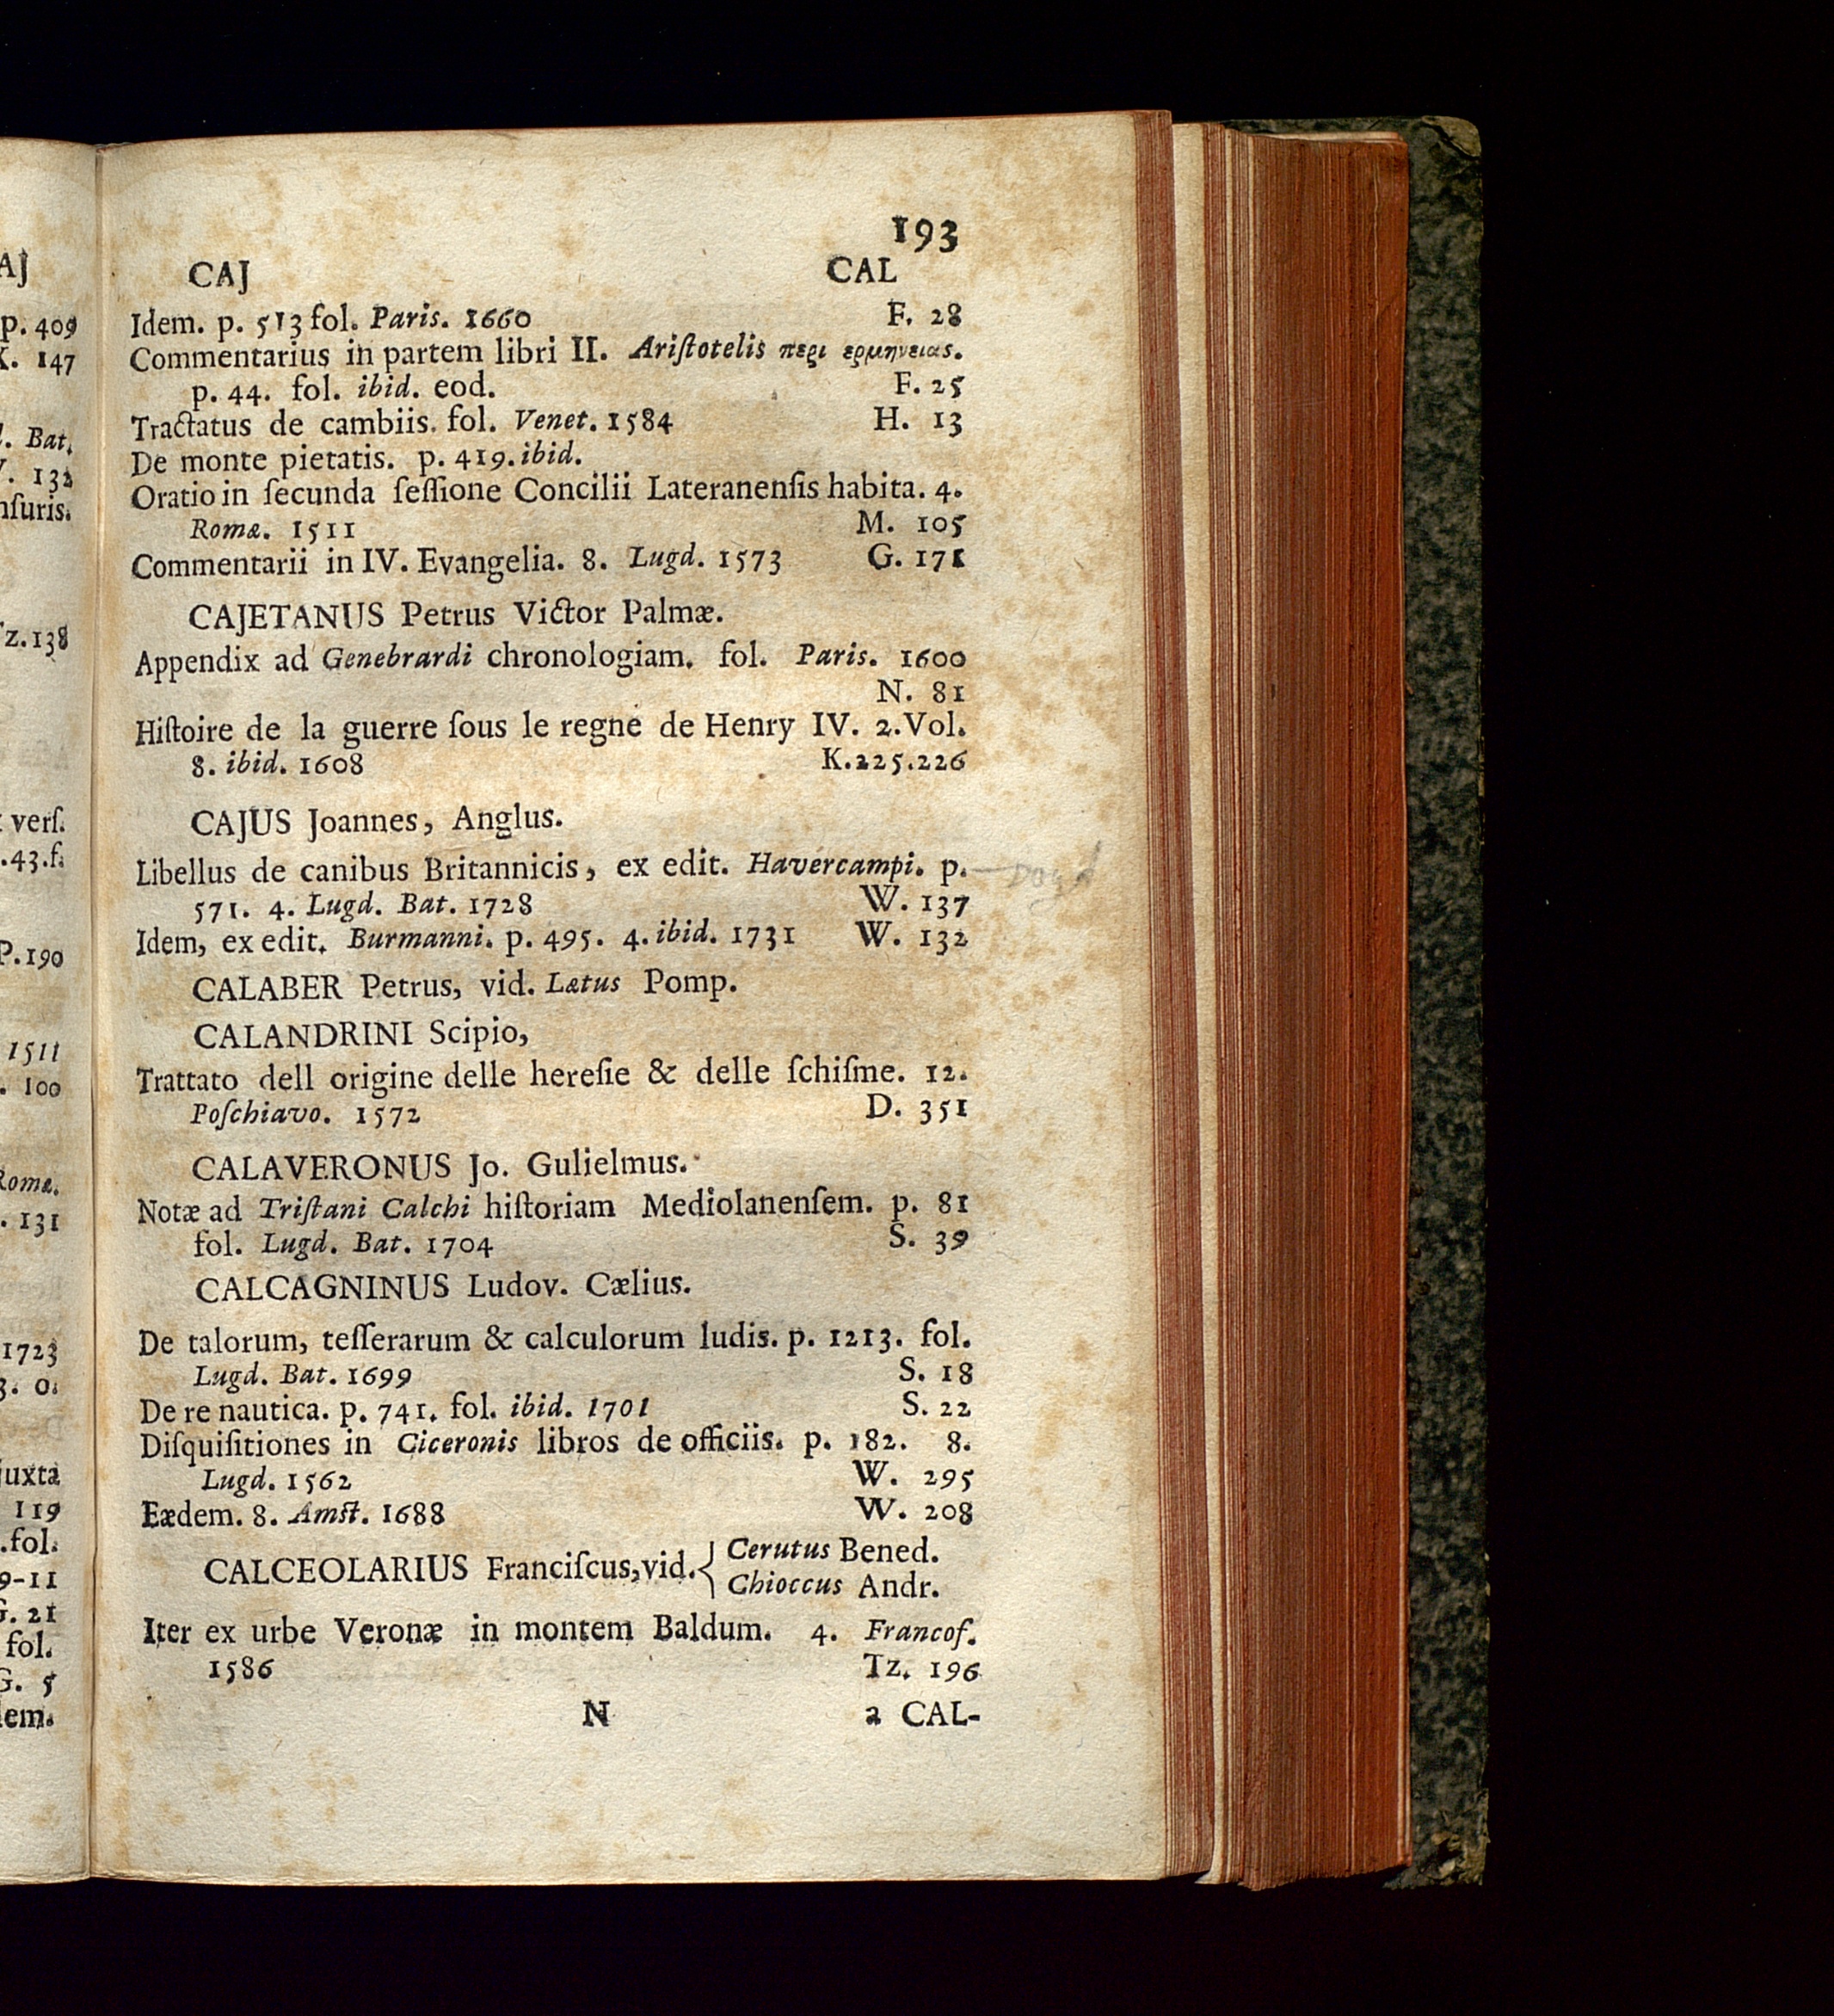 193
CAJ CAL
Idem. p. 513 fol. Paris. 1660 F. 28
Commentarius in partem libri II. Ariſtotelis περι ερμηνειας.
p. 44. fol. ibid. eod. F. 25
Tractatus de cambiis. fol. Venet. 1584 H. 13
De monte pietatis. p. 419. ibid.
Oratio in ſecunda ſeſſione Concilii Lateranenſis habita. 4.
Romæ. 1511 M. 105
Commentarii in IV. Evangelia. 8. Lugd. 1573 G. 171
CAJETANUS Petrus Victor Palmæ.
Appendix ad Genebrardi chronologiam. fol. Paris. 1600
N. 81
Hiſtoire de la guerre ſous le regne de Henry IV. 2. Vol.
8. ibid. 1608 K. 225. 226
CAJUS Joannes, Anglus.
Libellus de canibus Britannicis, ex edit. Havercampi. p.
571. 4. Lugd. Bat. 1728 W. 137
Idem, ex edit. Burmanni. p. 495. 4. ibid. 1731 W. 132
CALABER Petrus, vid. Lætus Pomp.
CALANDRINI Scipio,
Trattato dell origine delle hereſie & delle ſchiſme. 12.
Poſchiavo. 1572 D. 351
CALAVERONUS Jo. Gulielmus.
Notæ ad Triſtani Calchi hiſtoriam Mediolanenſem. p. 81
fol. Lugd. Bat. 1704 S. 39
CALCAGNINUS Ludov. Cælius.
De talorum, teſſerarum & calculorum ludis. p. 1213. fol.
Lugd. Bat. 1699 S. 18
De re nautica. p. 741. fol. ibid. 1701 S. 22
Diſquiſitiones in Ciceronis libros de officiis. p. 182. 8.
Lugd. 1562 W. 295
Eædem. 8. Amſt. 1688 W. 208
CALCEOLARIUS Franciſcus, vid. { Cerutus Bened.
Chioccus Andr.
Iter ex urbe Veronæ in montem Baldum. 4. Francof.
1586 Tz. 196
N 2 CAL-
AJ
p. 409
K. 147
. Bat.
. 132
nſuris.
z. 138
verſ.
.43.f.
P. 190
1511
. 100
Romæ.
. 131
1723
3. 0.
juxta
119
.fol.
9-11
G. 21
fol.
G. 5
dem.